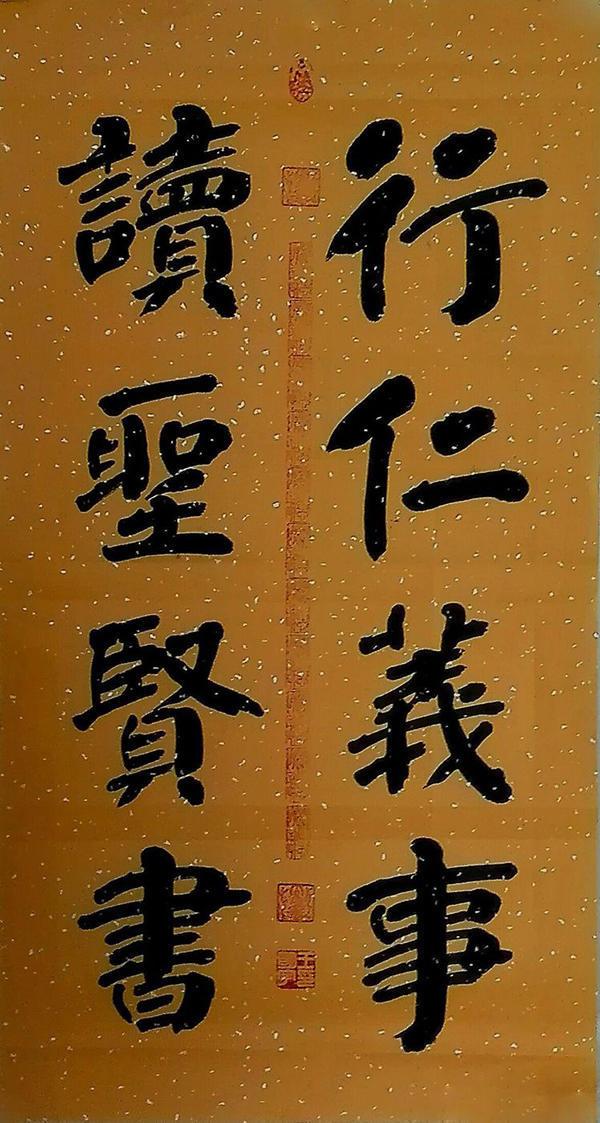 行仁義事
讀聖賢書